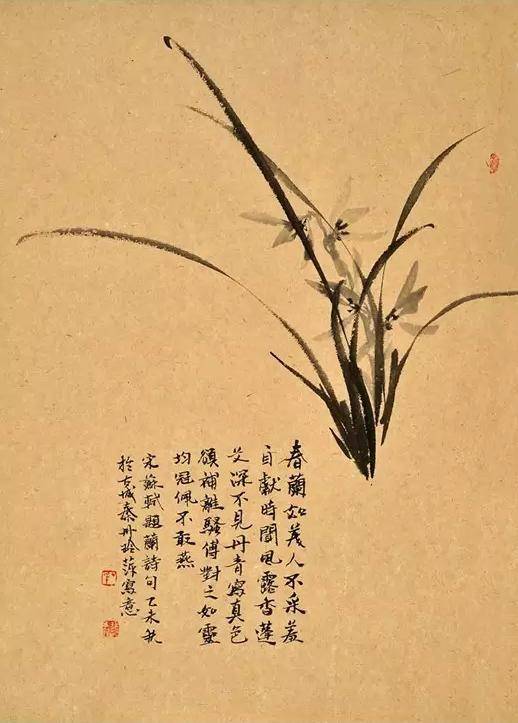 春蘭如美人不采羞
自獻時聞風露香蓬
艾深不見丹青寫真色
補離騷傳對之如靈
均冠佩不敢燕
宋蘇軾題蘭詩句乙未秋
於京城秦丹玲寫意